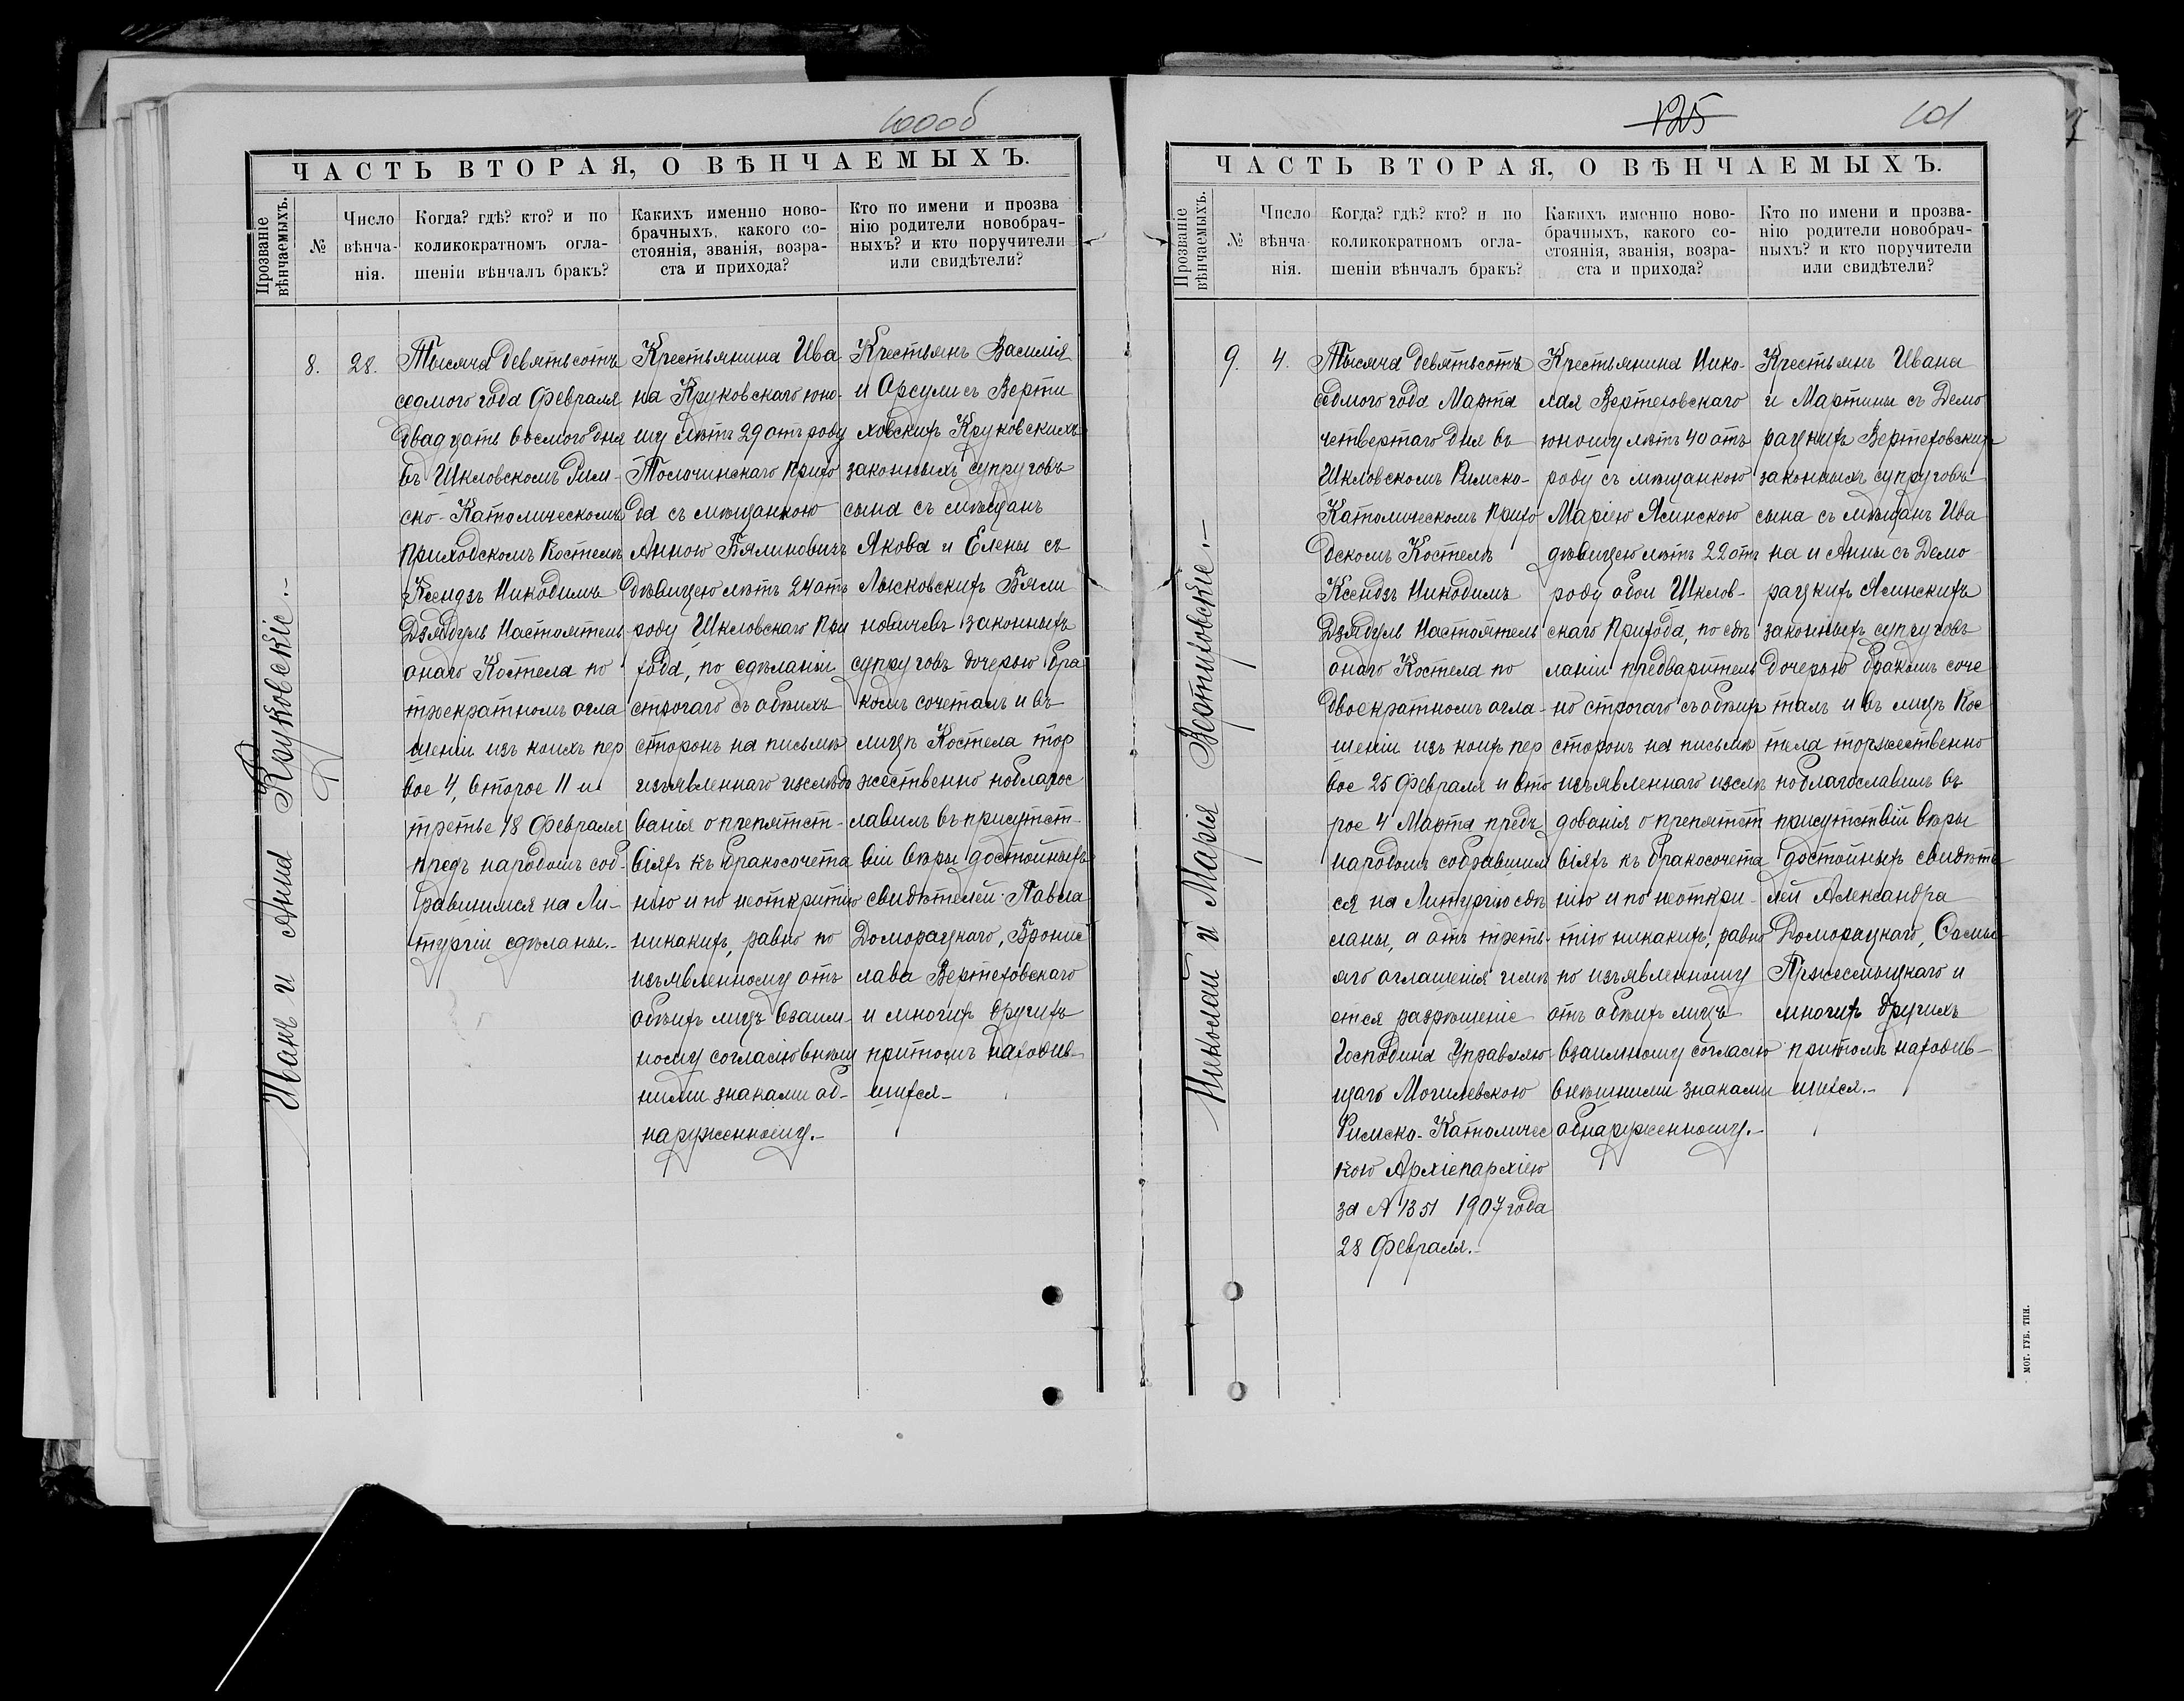 100об
ЧАСТЬ ВТОРАЯ, О ВѢНЧАЕМЫХЪ.
Прозваніе
вѣнчаемыхъ.
№
Число
вѣнча-
нія.
Когда? гдѣ? кто? и по
коликократномъ огла-
шеніи вѣнчалъ бракъ?
Какихъ именно ново-
брачныхъ, какого со-
стоянія, званія, возра-
ста и прихода?
Кто по имени и прозва
нію родители новобрач-
ныхъ? и кто поручители
или свидѣтели?
Иванъ и Анна Круковскіе.-
8.
28.
Тысяча девятьсотъ
седмого года Февраля
двадцать восмого дня
въ Шкловскомъ Рим-
ско-Католическомъ
приходскомъ Костелѣ
Ксендзъ Никодимъ
Дзябуль Настоятель
онаго Костела по
троекратномъ огла
шеніи изъ коихъ пер
вое 4, второе 11 и
третье 18 Февраля
предъ народомъ соб-
равшимся на Ли-
тургіи сдѣланы.-
Крестьянина Ива
на Круковскаго юно-
шу лѣтъ 29 отъ роду
Толочинскаго прихо
да съ мѣщанкою
Анною Бялиновичъ
дѣвицею лѣтъ 24 отъ
роду Шкловскаго при
хода, по сдѣланіи
строгаго съ обѣихъ
сторонъ на письмѣ
изъявленнаго изслѣдо
ванія о препятст-
віяхъ къ бракосочета
нію и по неоткрытію
никакихъ, равно по
изъявленному отъ
обѣихъ лицъ взаим-
ному согласію внѣш
ними знаками об-
наруженному.-
Крестьянъ Василія
и Орсули съ Верти
ховскихъ Круковскихъ
законныхъ супруговъ
сына съ мѣщанъ
Якова и Елены съ
Лысковскихъ Бяли
новичевъ законныхъ
супруговъ дочерью бра
комъ сочеталъ и въ
лицѣ Костела тор
жественно поблагос
лавилъ въ присутст-
віи вѣры достойныхъ
свидѣтелей Павла
Доморацкаго, Бронис
лава Вертеховскаго
и многихъ другихъ
притомъ находив-
шихся-
125
101
ЧАСТЬ ВТОРАЯ, О ВѢНЧАЕМЫХЪ.
Прозваніе
вѣнчаемыхъ.
№
Число
вѣнча-
нія.
Когда? гдѣ? кто? и по
коликократномъ огла-
шеніи вѣнчалъ бракъ?
Какихъ именно ново-
брачныхъ, какого со-
стоянія, званія, возра-
ста и прихода?
Кто по имени и прозва-
нію родители новобрач-
ныхъ? и кто поручители
или свидѣтели?
Николай и Марія Вертиховскіе.-
9.
4.
Тысяча девятьсотъ
седмого года Марта
четвертаго дня въ
Шкловскомъ Римско-
Католическомъ прихо
дскомъ Костелѣ
Ксендзъ Никодимъ
Дзябуль Настоятель
онаго Костела по
двоекратномъ огла-
шеніи изъ коихъ пер
вое 25 Февраля и вто
рое 4 Марта предъ
народомъ собравшим
ся на Литургію сдѣ
ланы, а отъ треть-
яго оглашенія имѣ
ется разрѣшеніе
Господина Управляю-
щаго Могилевскою
Римско-Католичес
кою Архіепархіею
за № 1351 1907 года
28 Февраля.-
Крестьянина Нико-
лая Вертеховскаго
юношу лѣтъ 40 отъ
роду съ мѣщанкою
Маріею Ясинскою
дѣвицею лѣтъ 22 отъ
роду обои Шклов-
скаго прихода, по сдѣ
ланіи предваритель
но строгаго съ обѣихъ
сторонъ на письмѣ
изъявленнаго изслѣ
дованія о препятст
віяхъ къ бракосочета
нію и по неоткры-
тію никакихъ, равно
по изъявленному
отъ обѣихъ лицъ
взаимному согласію
внѣшними знаками
обнаруженному.-
Крестьянъ Ивана
и Мартины съ Демо
рацкихъ Вертеховскихъ
законныхъ супруговъ
сына съ мѣщанъ Ива
на и Анны съ Демо
рацкихъ Ясинскихъ
законныхъ супруговъ
дочерью бракомъ соче
талъ и въ лицѣ Кос
тела торжественно
поблагославилъ въ
присутствіи вѣры
достойныхъ свидѣте
лей Александра
Доморацкаго,
Пржесмыцкаго и
многихъ другихъ
притомъ находив-
шихся.-
МОГ. ГУБ. ТИП.